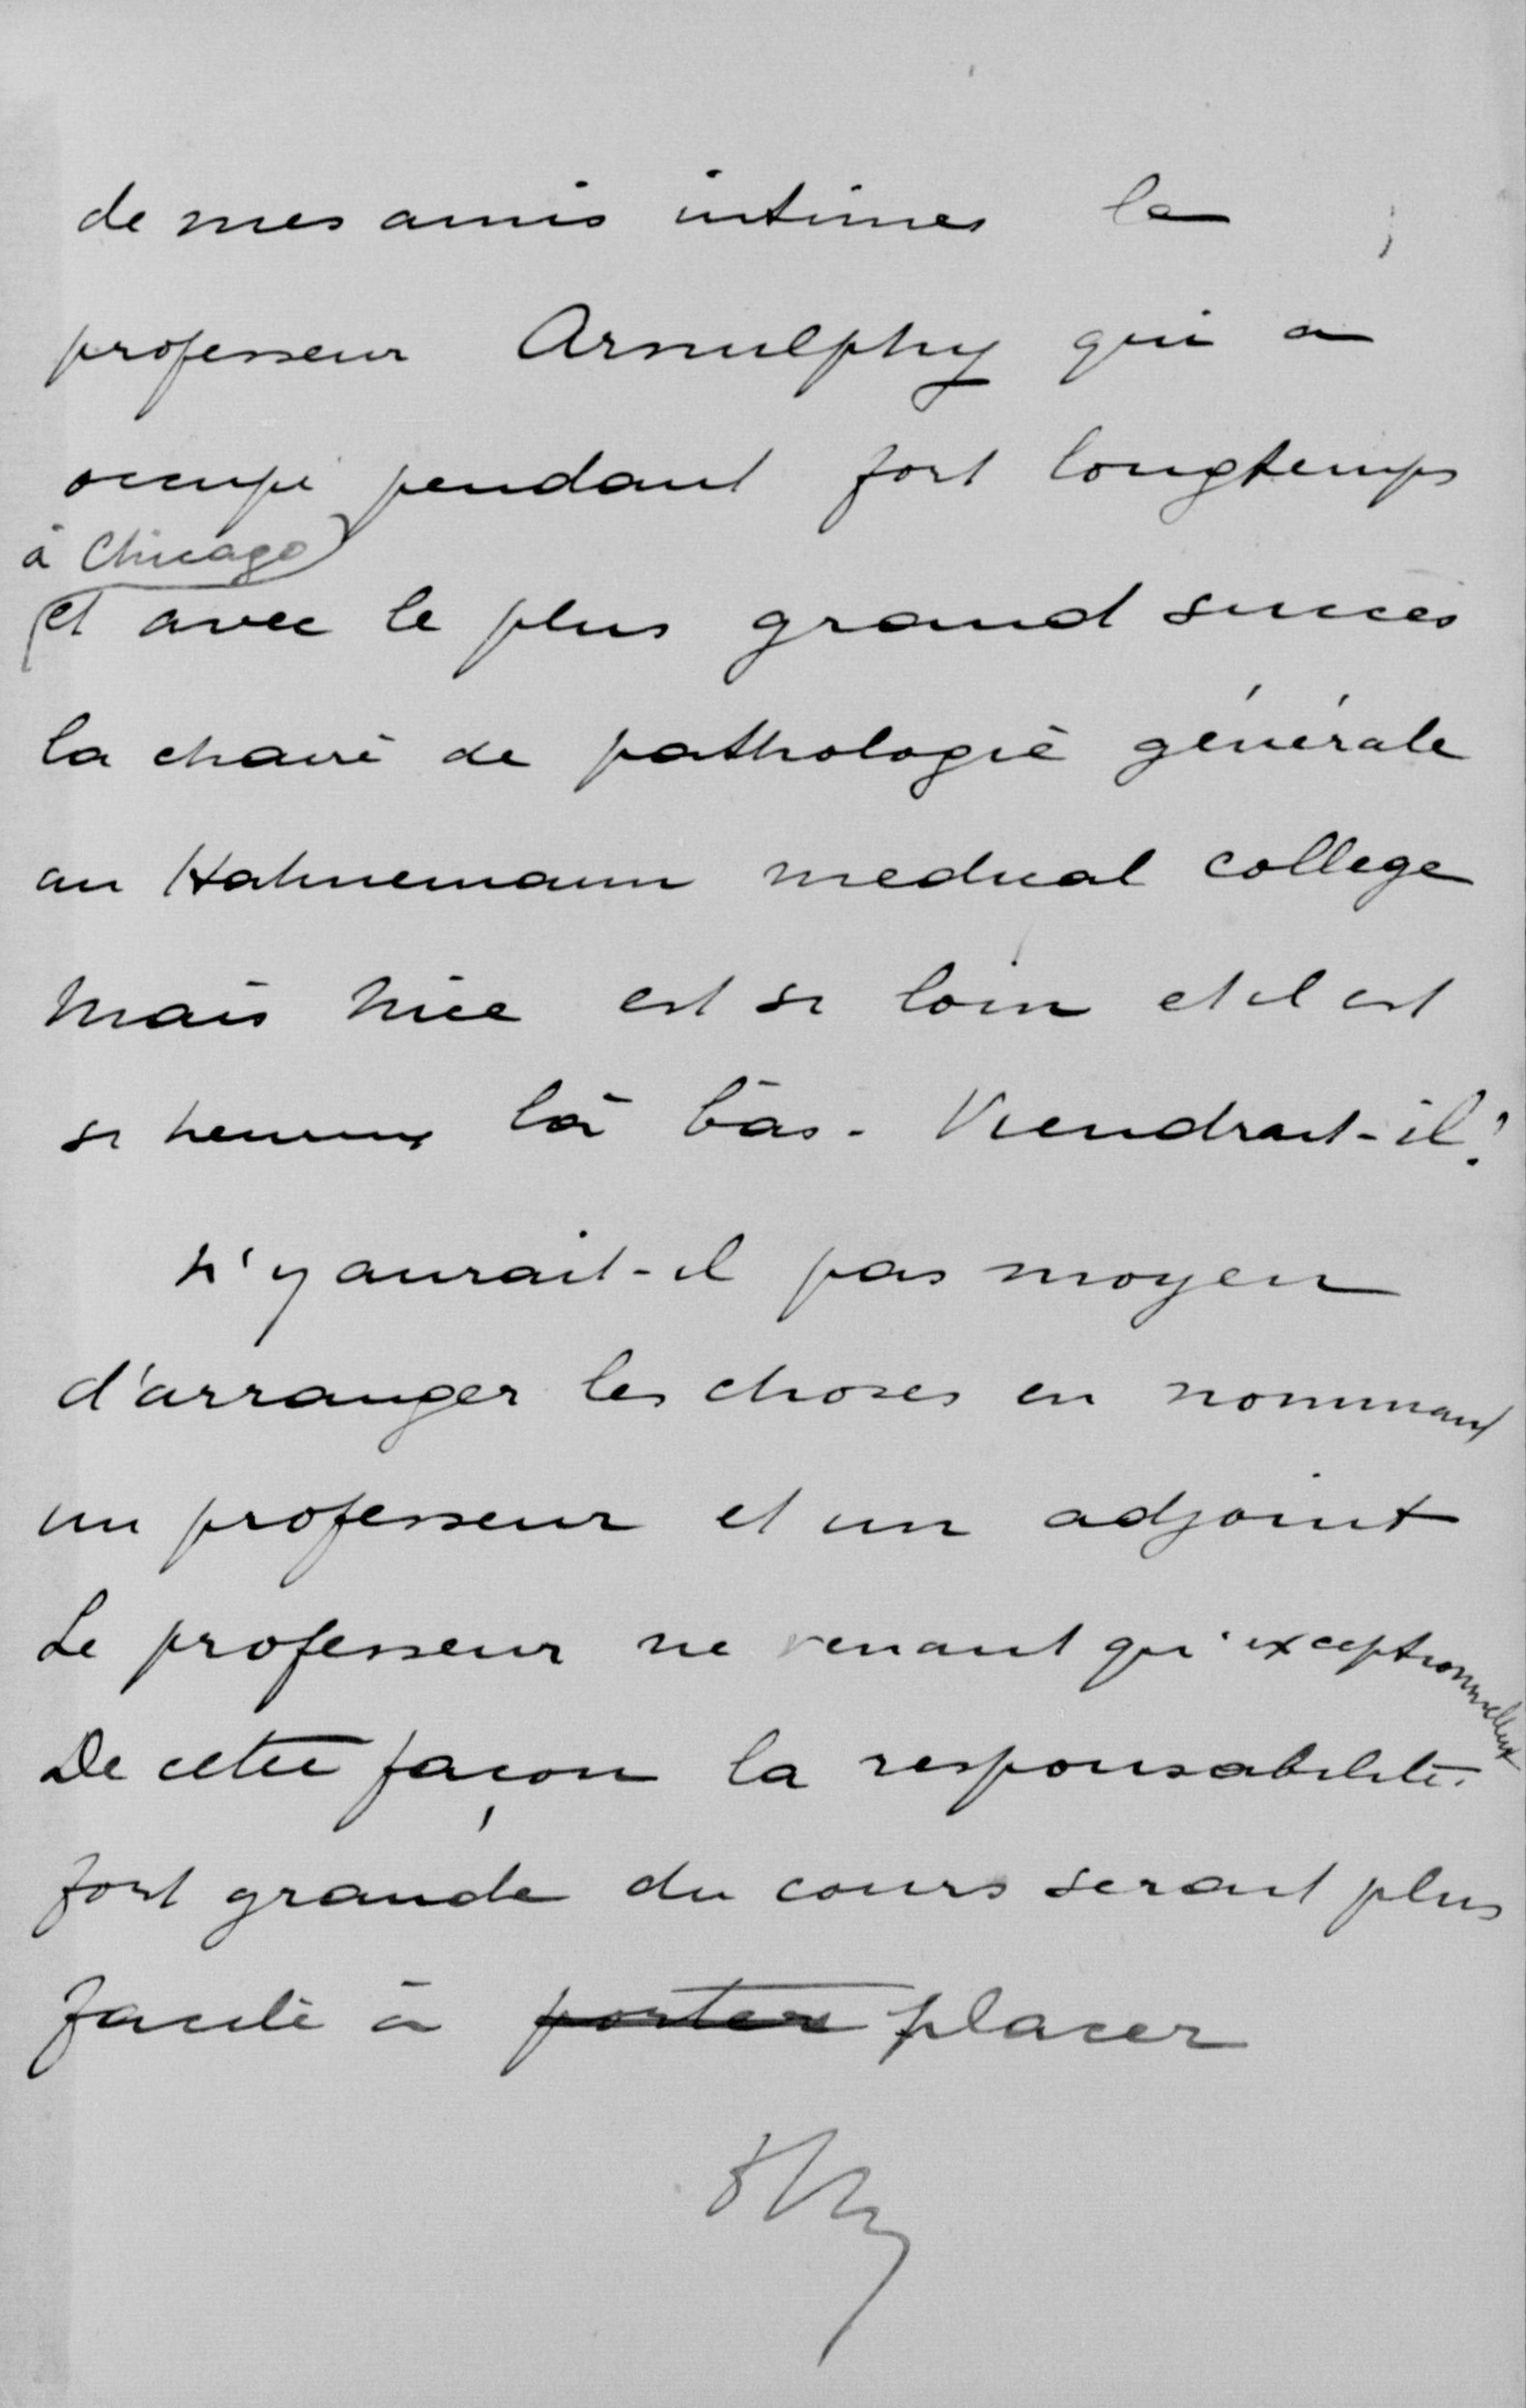 de mes amis intimes le
professeur Arnulphy qui a
occupé pendant fort longtemps
à Chicago
et avec le plus grand succès
la chaire de pathologie générale
au Hahnemann medical college
Mais Nice est si loin et il est
si heureux là bas. Viendrait-il?
N'y aurait-il pas moyen
d'arranger les choses en nommant
un professeur et un adjoint
Le professeur ne venant qu'exceptionnellement
De cette façon la responsabilité
fort grande du cours serait plus
facile à porter placer